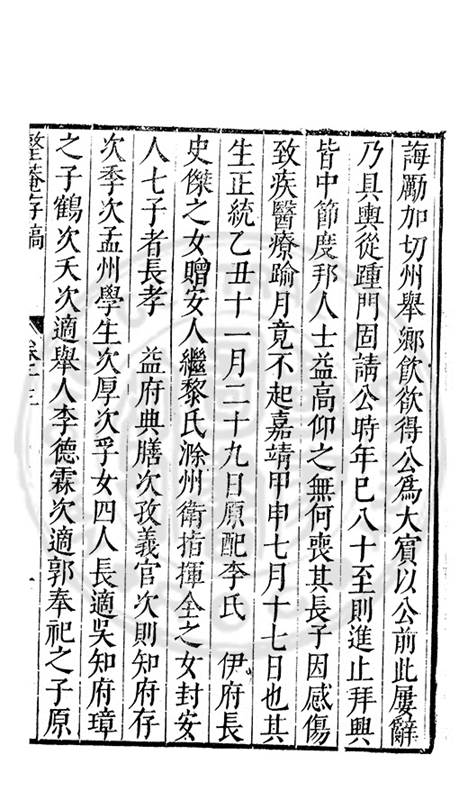 誨勵加切州舉鄉飲欲得公爲大賓以公前此屢辭
乃具輿從踵門固請公時年巳八十至則進止拜興
皆中節度邦人士益高仰之無何喪其長子因感傷
致疾醫療踰月竟不起嘉靖甲申七月十七日也其
生正統乙丑十一月二十九日原配李氏　伊府長
史傑之女贈安人繼黎氏滁州衛指揮全之女封安
人七子者長孝　益府典膳次孜義官次則知府存
次季次孟州學生次厚次孚女四人長適吳知府璋
之子鶴次夭次適舉人李德霖次適郭奉祀之子原
整菴存稿　卷十三